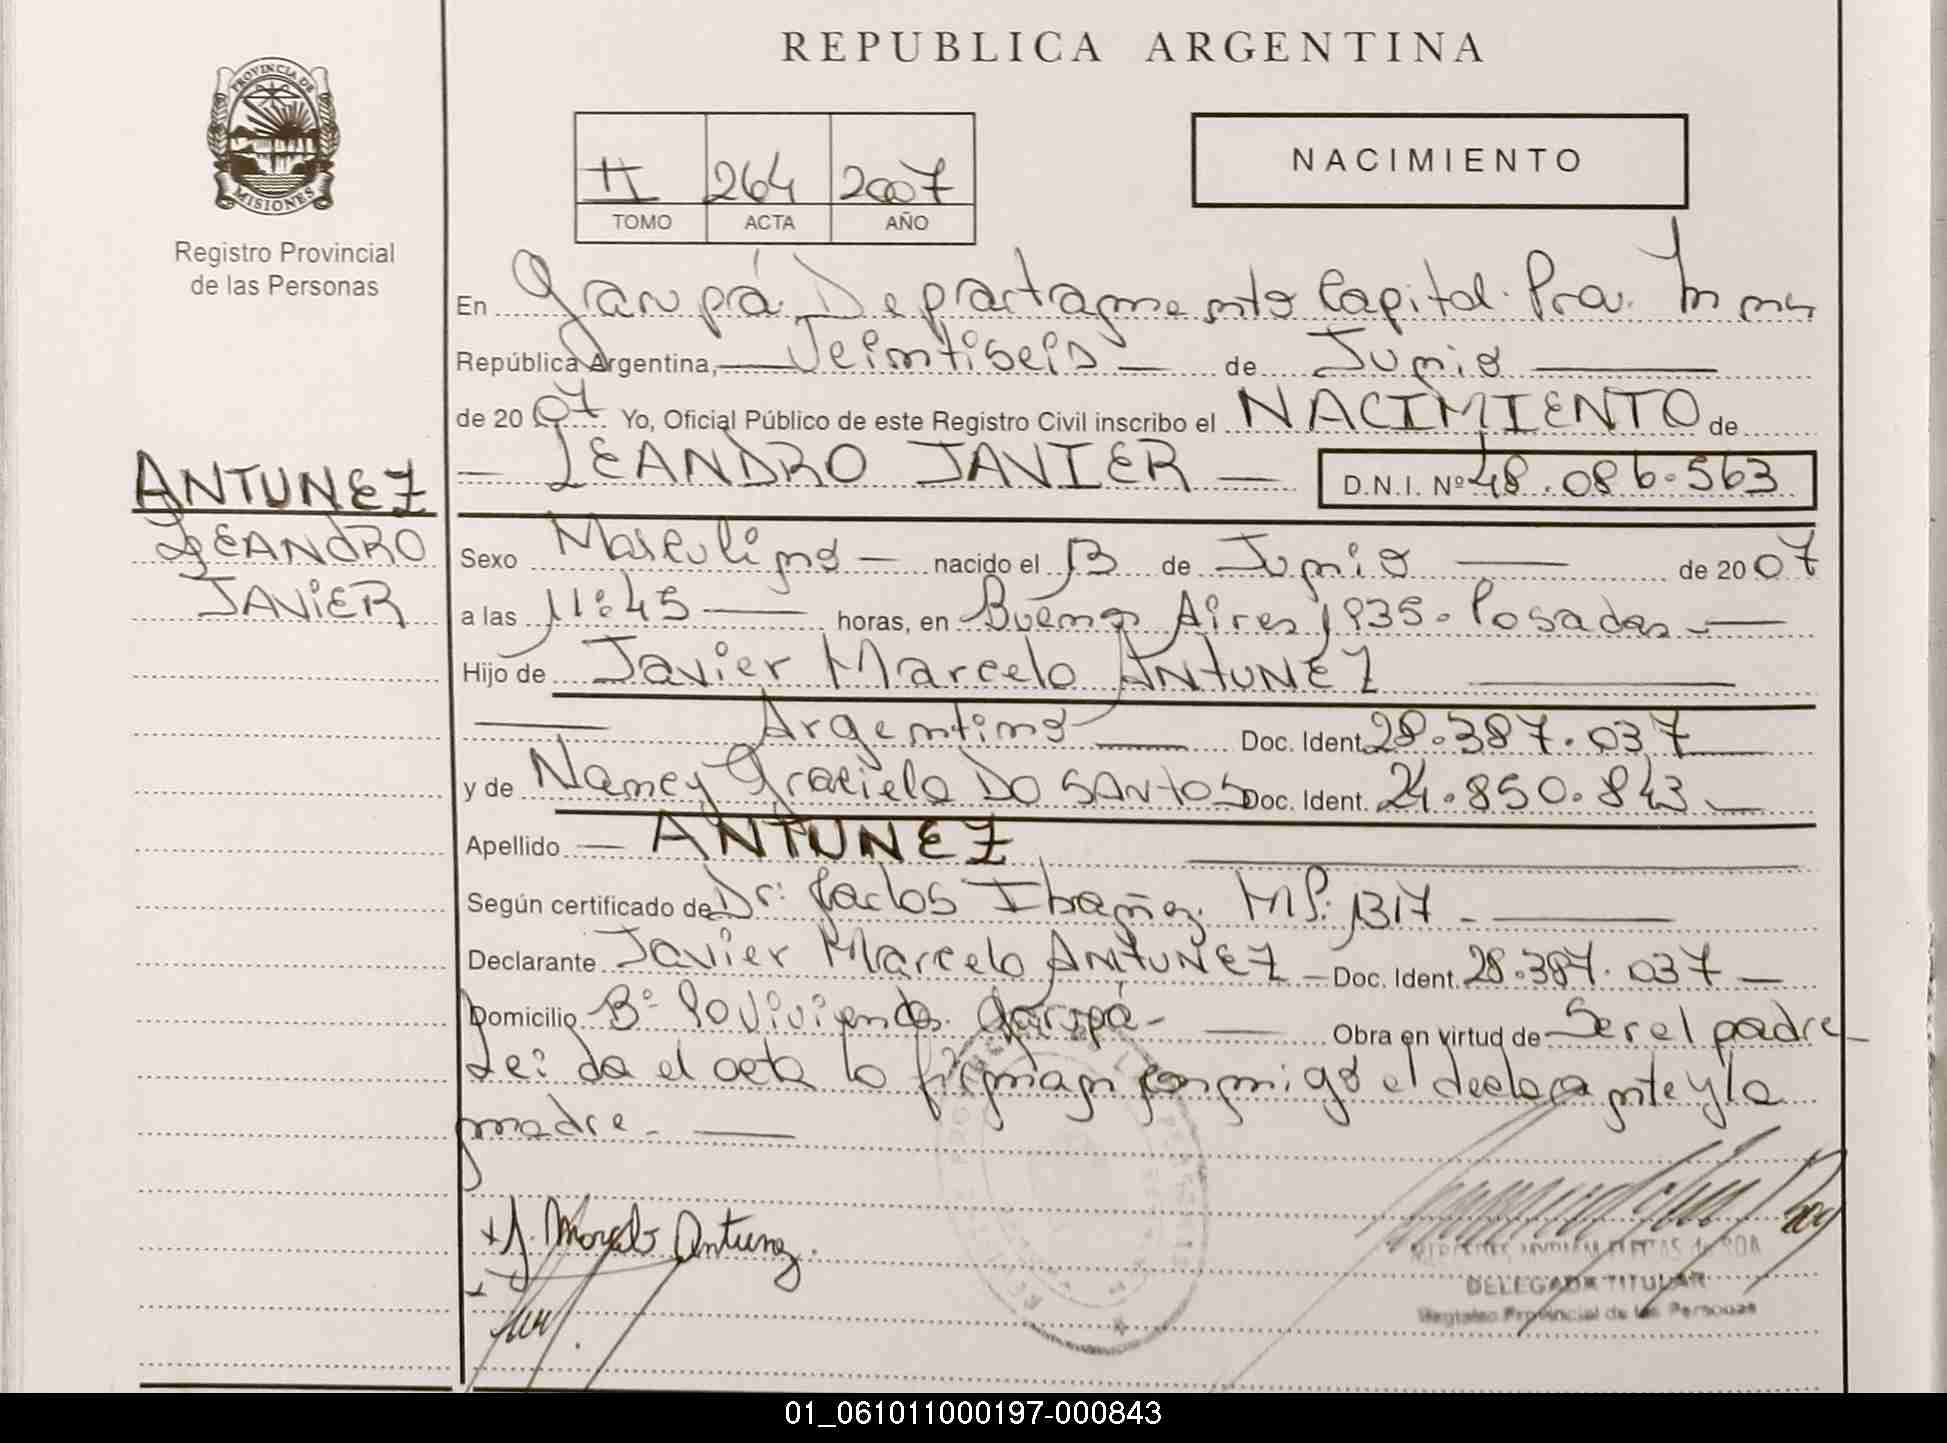 REPUBLICA ARGENTINA
PROVINCIA DE MISIONES
Registro Provincial
de las Personas
II 264 2007
TOMO ACTA AÑO
NACIMIENTO
En Garupá, Departamento Capital. Pcia. Mnes
República Argentina, Veintiseis de Junio
de 2007 Yo, Oficial Público de este Registro Civil inscribo el NACIMIENTO de
LEANDRO JAVIER D.N.I. Nº 48.086.563
ANTUNEZ
LEANDRO
JAVIER
Sexo Masculino nacido el 13 de Junio de 2007
a las 11:45 horas, en Buenos Aires 1935. Posadas
Hijo de Javier Marcelo ANTUNEZ
Argentino Doc. Ident. 28.387.037
y de Nancy Graciela DO SANTOS Doc. Ident. 24.850.843
Apellido ANTUNEZ
Según certificado de Dr: Carlos Ibañez. MP: 1317
Declarante Javier Marcelo ANTUNEZ Doc. Ident. 28.387.037
Domicilio Bº Viviendas Garupá Obra en virtud de Ser el padre
Leida el acta la firman conmigo el declarante y la
madre
J. Marcelo Antunez.
DELEGADA TITULAR
Registro Provincial de las Personas
01_061011000197-000843